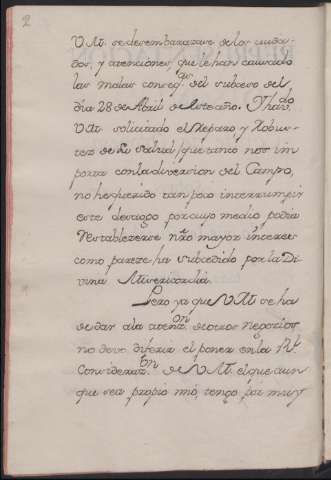 2
V.M. se desembarazase de los cuida-
dos, y atenciones, que le han causado
las malas conseq.as del subceso del
dia 28 de Abril de este año. Y hav.do
V.M. solicitado el Reparo y Robus-
tez de su salud (que tanto nos im
porta con la diversion del Campo,
no he querido tampoco interrumpir
este desaogo por cuyo medio podia
restablezerse nro mayor interes
como pareze ha subcedido por la Di-
vina Misericordia.
Pero ya que V.M. se ha
de dar a la aten.on de otros Negocios
no devo diferir el poner en la R.l
Consideraz.on de V.M. el que aun
que sea propio mio, tengo por muy